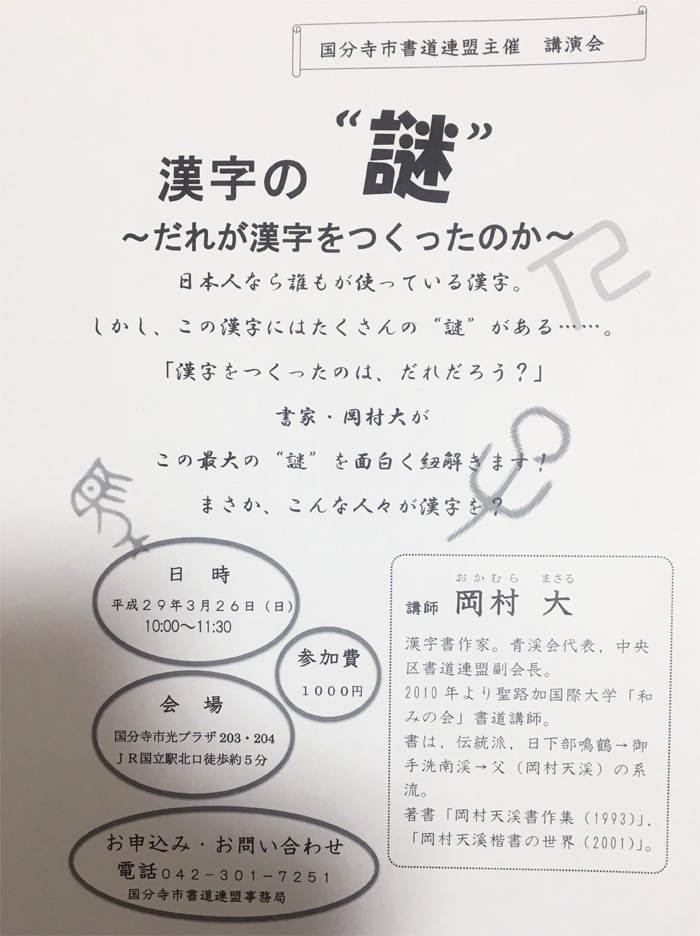 国分寺市書道連盟主催 講演会
漢字の“謎”
～だれが漢字をつくったのか～
日本人なら誰もが使っている漢字。
しかし、この漢字にはたくさんの“謎”がある……。
「漢字をつくったのは、だれだろう？」
書家・岡村大が
この最大の“謎”を面白く紐解きます！
まさか、こんな人々が漢字を？
日 時
平成２９年３月２６日（日）
10:00～11:30
参加費
１０００円
会 場
国分寺市光プラザ 203・204
ＪＲ国立駅北口徒歩約５分
お申込み・お問い合わせ
電話０４２－３０１－７２５１
国分寺市書道連盟事務局
おかむら まさる
講師 岡村 大
漢字書作家。青渓会代表，中央
区書道連盟副会長。
2010 年より聖路加国際大学「和
みの会」書道講師。
書は，伝統派，日下部鳴鶴→御
手洗南渓→父（岡村天渓）の系
流。
著書「岡村天渓書作集（1993）」，
「岡村天溪楷書の世界（2001）」。